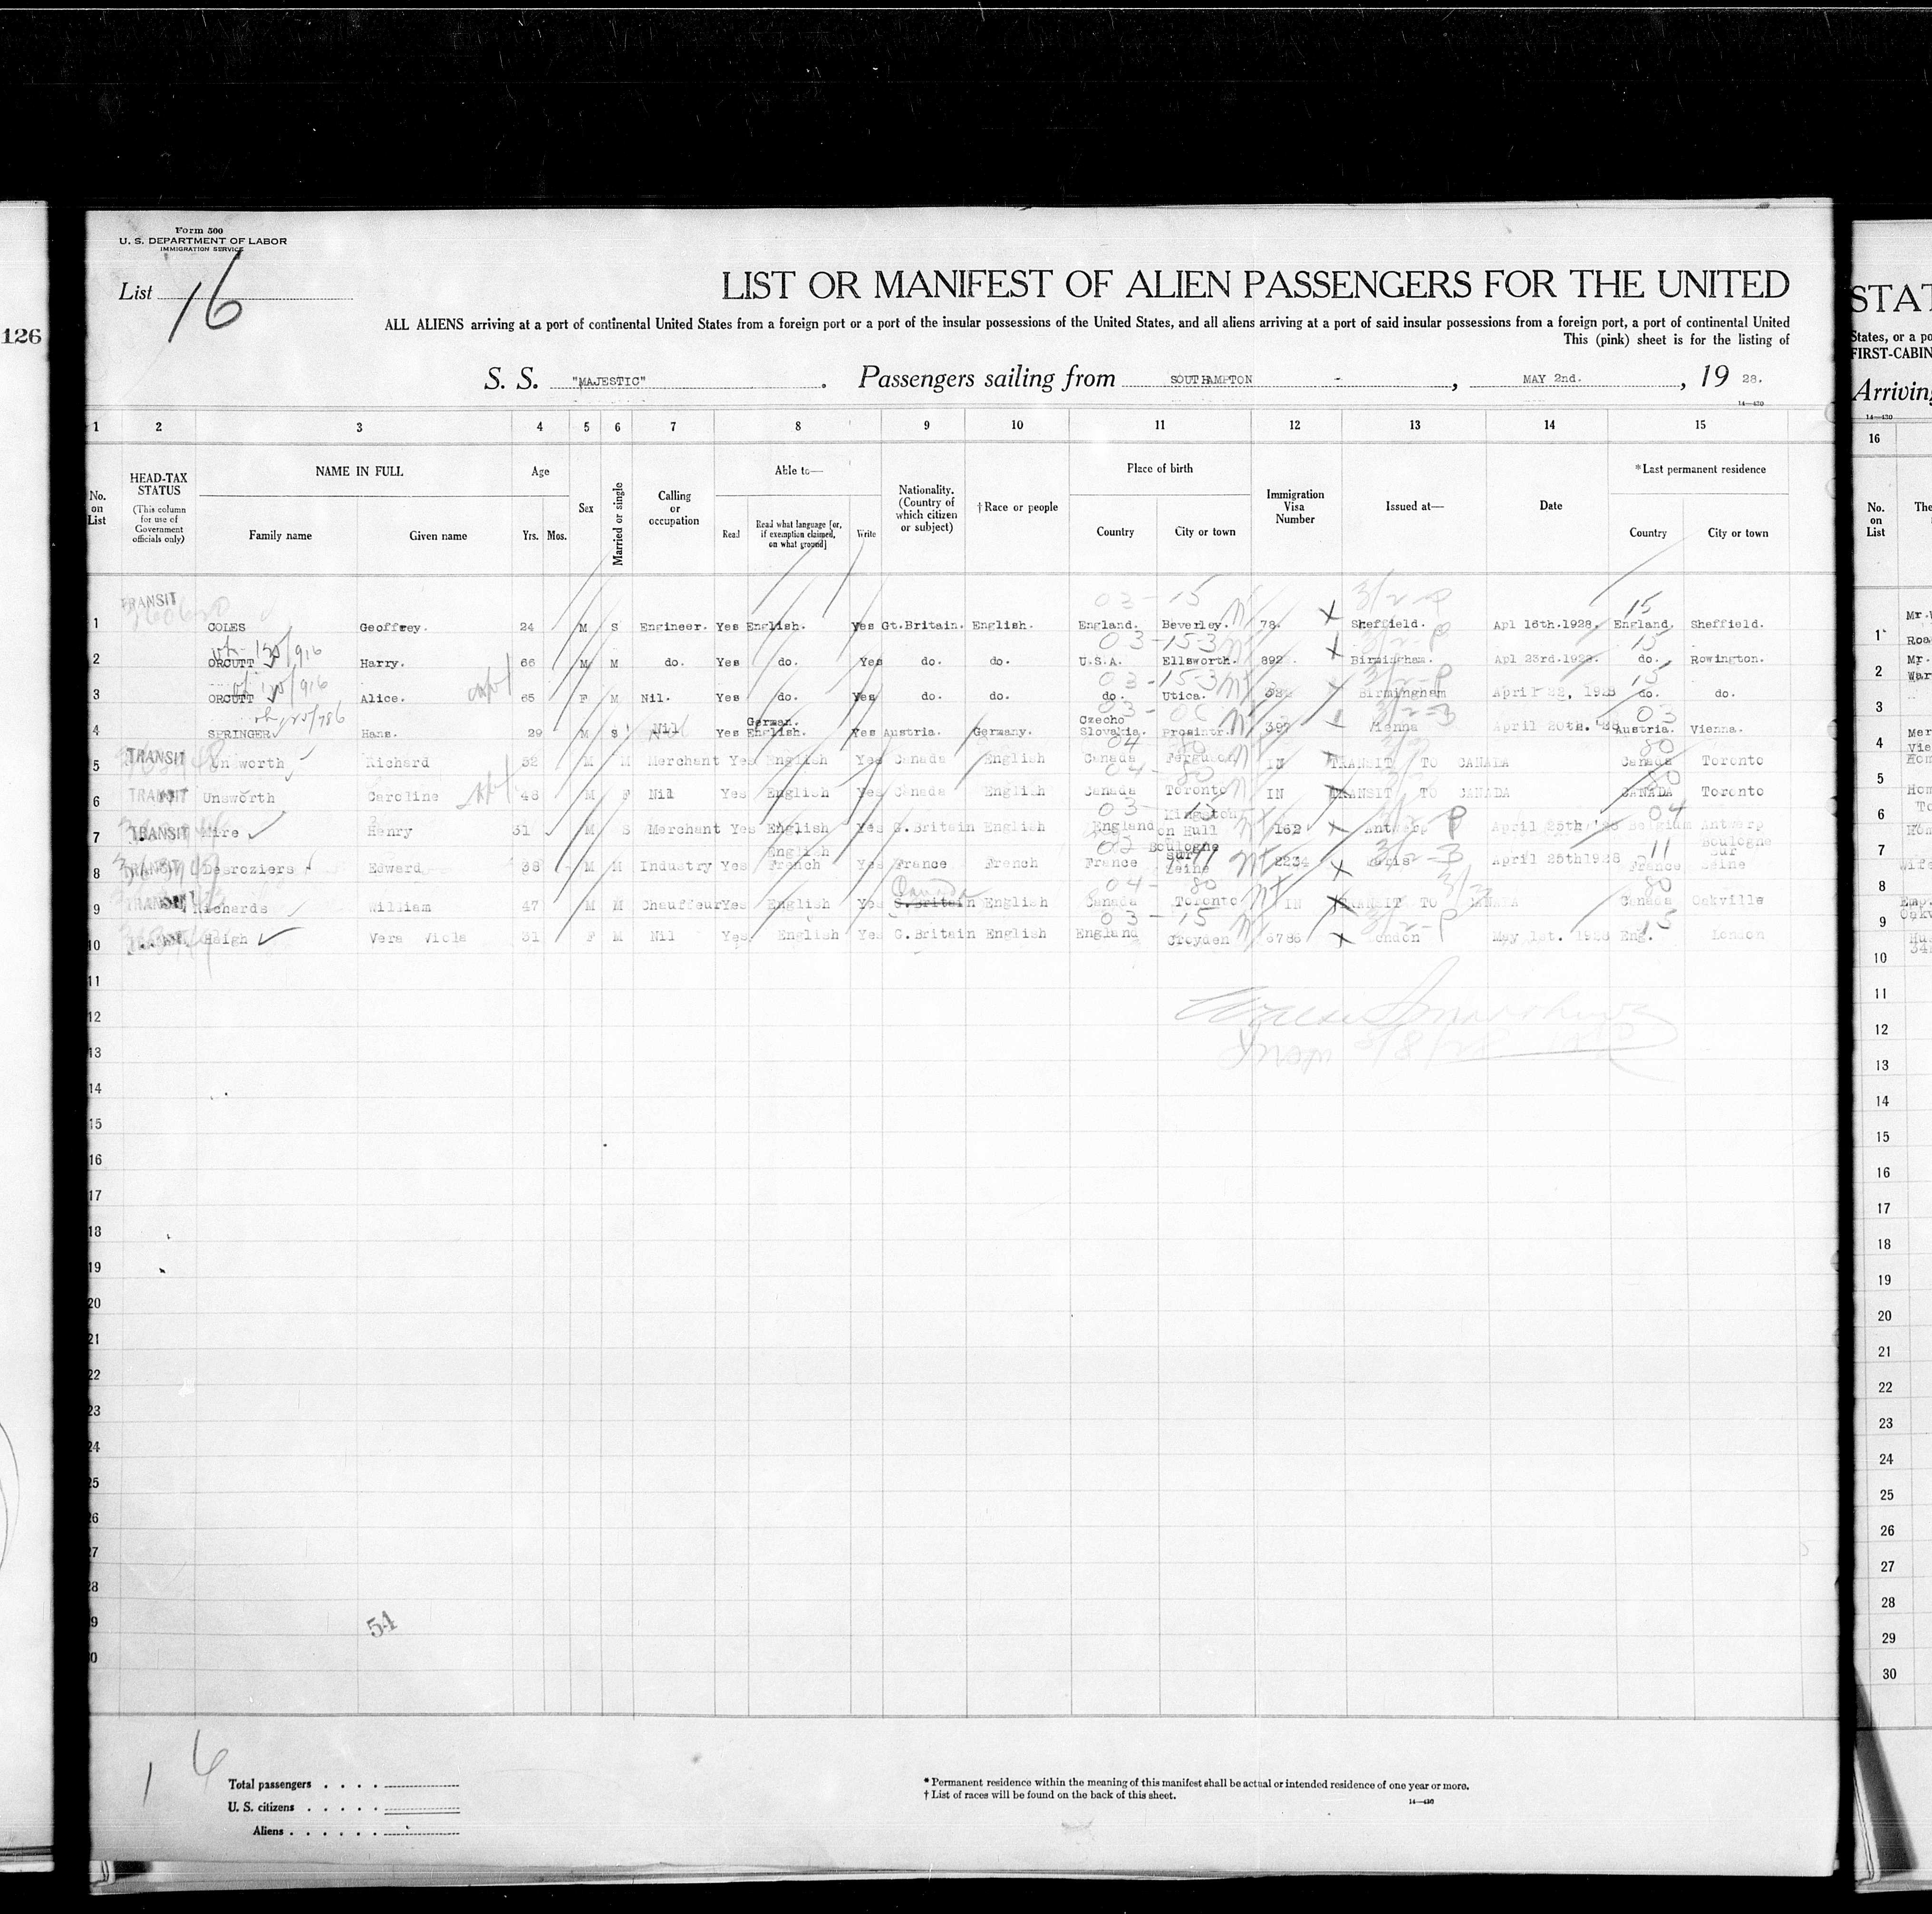 Form 500
U. S. DEPARTMENT OF LABOR
IMMIGRATION SERVICE
List 16
126
LIST OR MANIFEST OF ALIEN PASSENGERS FOR THE UNITED
STAT
ALL ALIENS arriving at a port of continental United States from a foreign port or a port of the insular possessions of the United States, and all aliens arriving at a port of said insular possessions from a foreign port, a port of continental United
States, or a po
This (pink) sheet is for the listing of
FIRST-CABIN
S. S. "MAJESTIC". Passengers sailing from SOUTHAMPTON - , MAY 2nd. , 19 28.
Arriving
14—430
14—430
1 2 3 4 5 6 7 8 9 10 11 12 13 14 15
16
No. on List
HEAD-TAX STATUS (This column for use of Government officials only)
NAME IN FULL
Family name Given name
Age
Yrs. Mos.
Sex
Married or single
Calling or occupation
Able to—
Read
Read what language [or, if exemption claimed, on what ground]
Write
Nationality. (Country of which citizen or subject)
†Race or people
Place of birth
Country City or town
Immigration Visa Number
Issued at—
Date
*Last permanent residence
Country City or town
No. on List
The
TRANSIT 03-15 3/2-P 15
1 COLES Geoffrey. 24 M S Engineer. Yes English. Yes Gt.Britain. English. England. Beverley. 78. X Sheffield. Apl 16th.1928. England. Sheffield.
125/916 03-15-3 15
2 ORCUTT Harry. 66 M M do. Yes do. Yes do. do. U.S.A. Ellsworth. 892. Birmingham. Apl 23rd.1928. do. Rowington.
125/916 03-15-3 15
3 ORCUTT Alice. 65 F M Nil. Yes do. Yes do. do. do. Utica. Birmingham April 1928 do. do.
125/786 3/2-3 03
4 SPRINGER Hans. 29 M S Nil Yes German. English. Yes Austria. Germany. Czecho Slovakia. 397 Vienna April 20th.'28 Austria. Vienna.
04 80 80
5 TRANSIT Unsworth Richard 52 M M Merchant Yes English Yes Canada English Canada Ferguson IN TRANSIT TO CANADA Canada Toronto
04-80 80
6 TRANSIT Unsworth Caroline 48 M F Nil Yes English Yes Canada English Canada Toronto IN TRANSIT TO CANADA CANADA Toronto
03-15 04
7 TRANSIT Henry 31 M S Merchant Yes English Yes G.Britain English England Kingston on Hull 162 X Antwerp April 25th/'28 Belgium Antwerp
11
8 TRANSIT Desroziers Edward 38 M M Industry Yes English French Yes France French France Boulogne sur Seine 2234 X Paris April 25th1928 France Boulogne sur Seine
04-80 80
9 TRANSIT Richards William 47 M M Chauffeur Yes English Yes Canada G.Britain English Canada Toronto IN TRANSIT TO CANADA Canada Oakville
03-15 3/2-P 15
10 Haigh Vera Viola 31 F M Nil Yes English Yes G.Britain English England Croyden 6786 X London May 1st. 1928 Eng. London
11
12
13
14
15
16
17
18
19
20
21
22
23
24
25
26
27
28
9
0
54
16
Total passengers . . . .
U. S. citizens . . . . .
Aliens . . . . . .
* Permanent residence within the meaning of this manifest shall be actual or intended residence of one year or more.
† List of races will be found on the back of this sheet.
14—430
1
2
3
4
5
6
7
8
9
10
11
12
13
14
15
16
17
18
19
20
21
22
23
24
25
26
27
28
29
30